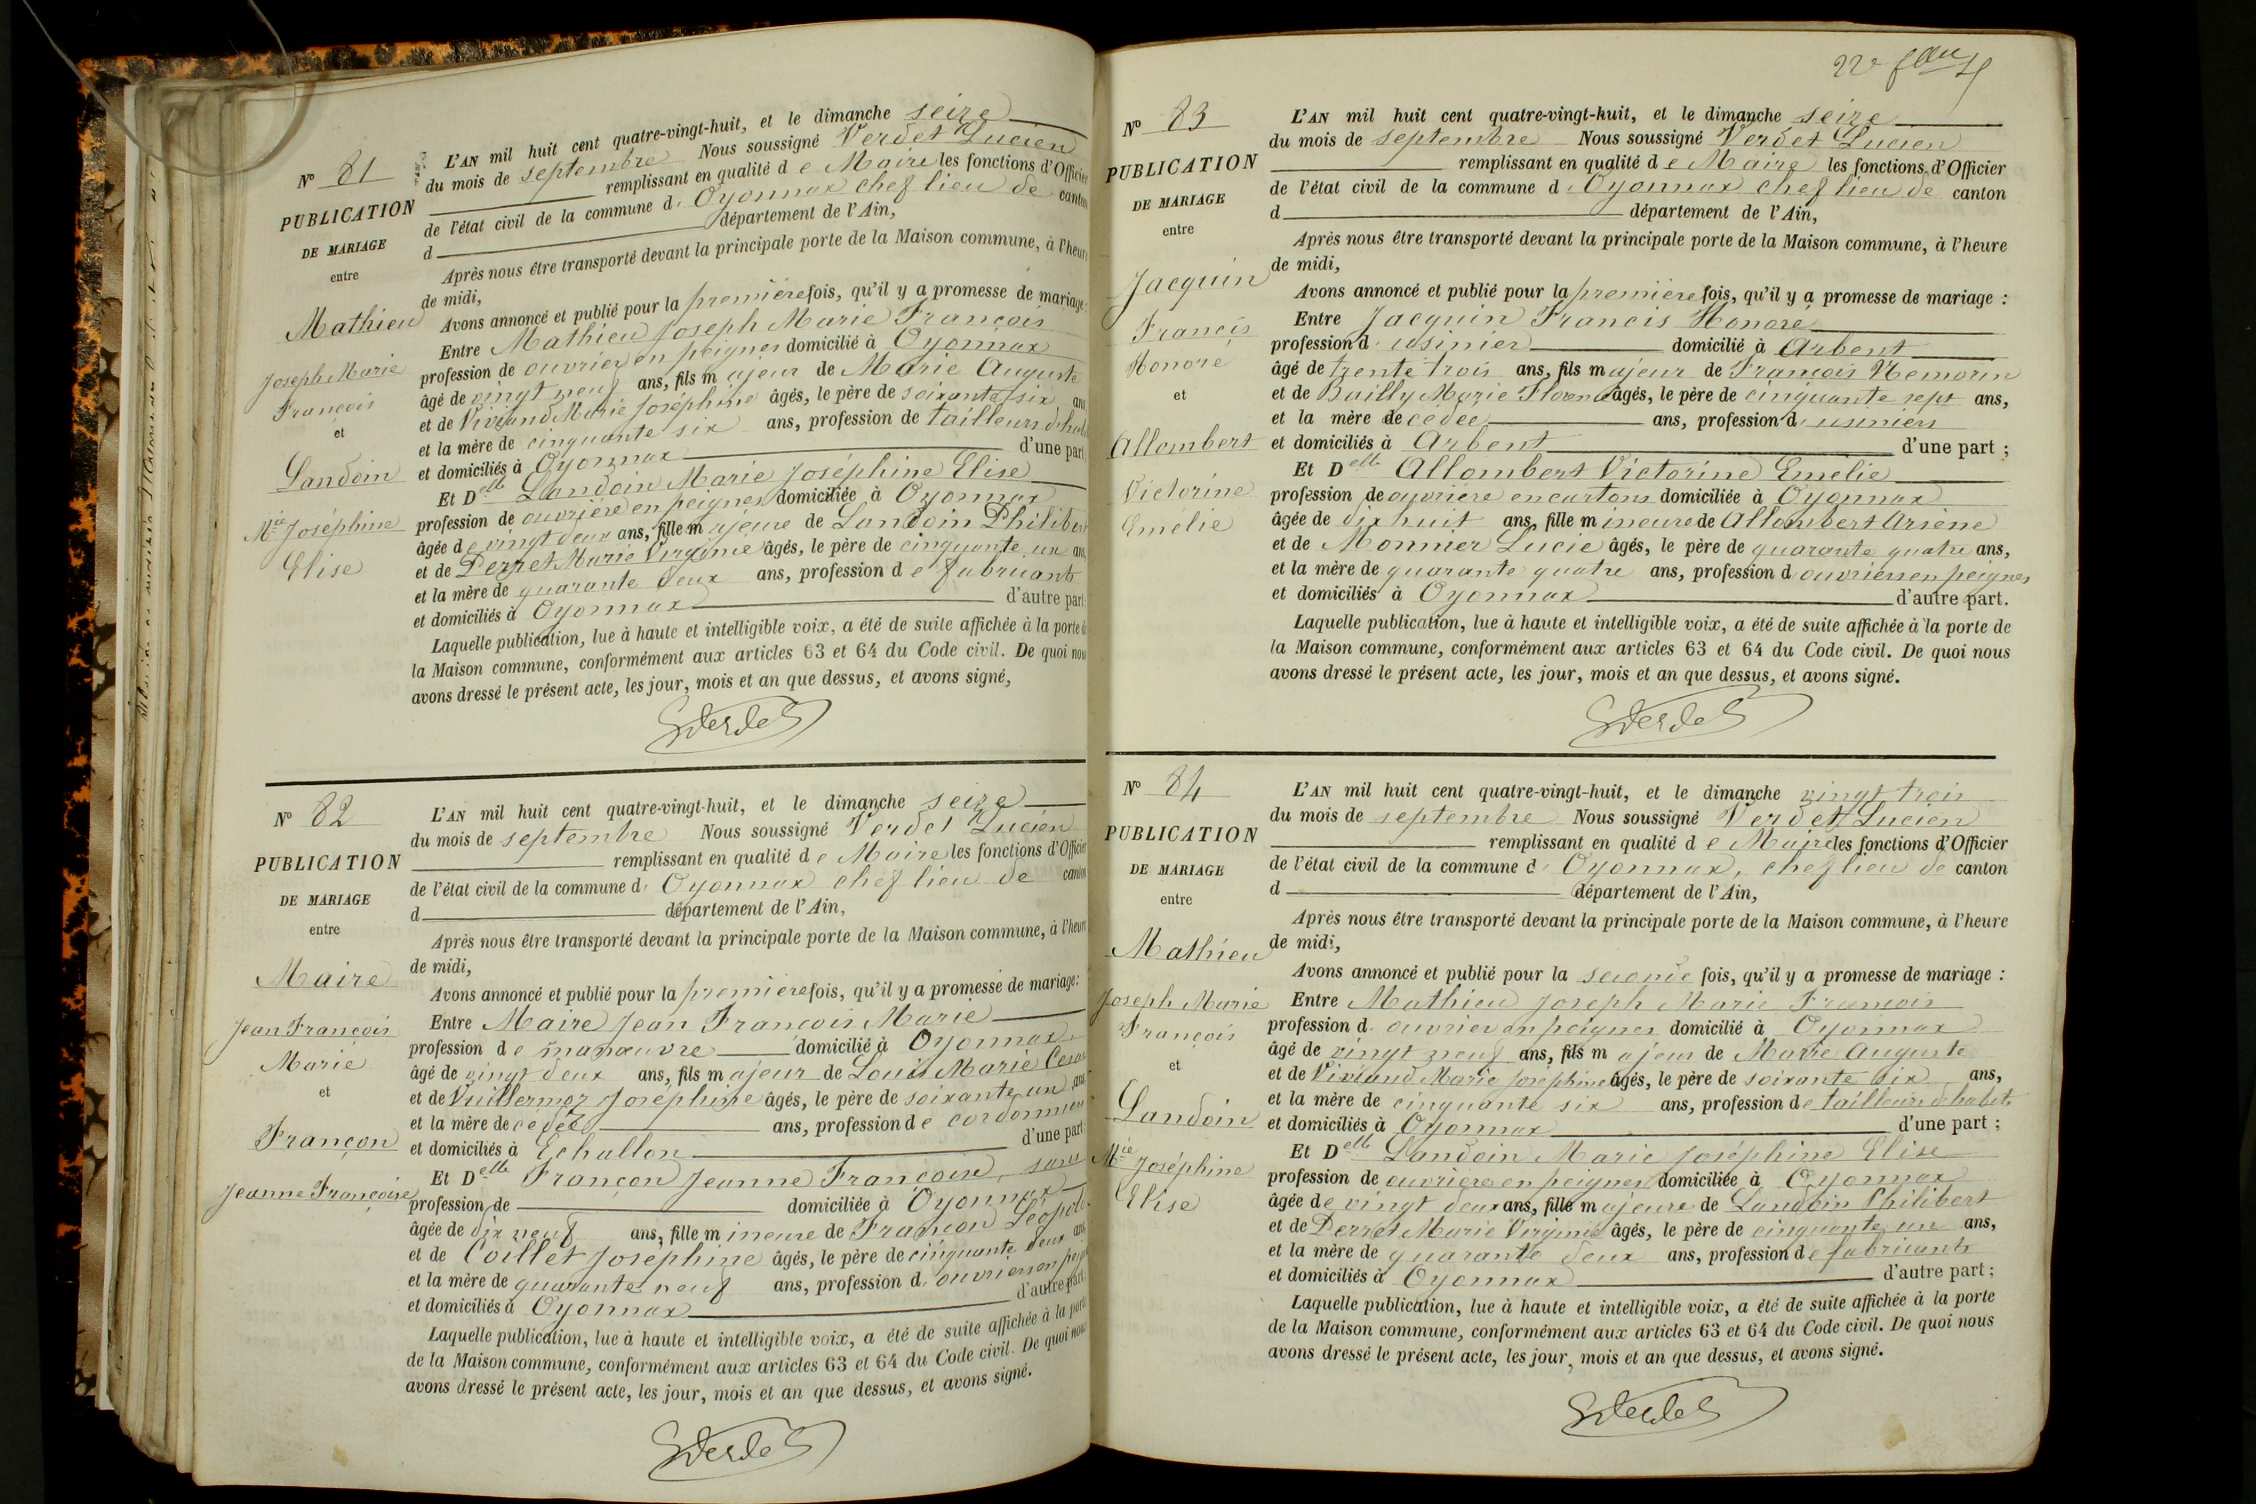 N° 81
PUBLICATION
DE MARIAGE
entre
Mathieu
Joseph Marie
François
et
Landoin
Mie Joséphine
Elise
L'AN mil huit cent quatre-vingt-huit, et le dimanche seize
du mois de septembre Nous soussigné Verdet Lucien
remplissant en qualité de Maire les fonctions d'Officier
de l'état civil de la commune d' Oyonnax chef lieu de canton
d département de l'Ain,
Après nous être transporté devant la principale porte de la Maison commune, à l'heure
de midi,
Avons annoncé et publié pour la première fois, qu'il y a promesse de mariage:
Entre Mathieu Joseph Marie François
profession de ouvrier en peignes domicilié à Oyonnax
âgé de vingt neuf ans, fils majeur de Marie Auguste
et de Viviand Marie Joséphine âgés, le père de soixante six ans
et la mère de cinquante six ans, profession de tailleurs d'hab
et domiciliés à Oyonnax d'une part
Et Delle Landoin Marie Joséphine Elise
profession de ouvrière en peignes domiciliée à Oyonnax
âgée de vingt deux ans, fille majeure de Landoin Philibert
et de Perret Marie Virginie âgés, le père de cinquante un ans
et la mère de quarante deux ans, profession de fabricants
et domiciliés à Oyonnax d'autre part.
Laquelle publication, lue à haute et intelligible voix, a été de suite affichée à la porte de
la Maison commune, conformément aux articles 63 et 64 du Code civil. De quoi nous
avons dressé le présent acte, les jour, mois et an que dessus, et avons signé,
Verdet
N° 82
PUBLICATION
DE MARIAGE
entre
Maire
Jean François
Marie
et
Françon
Jeanne Françoise
L'AN mil huit cent quatre-vingt-huit, et le dimanche seize
du mois de septembre Nous soussigné Verdet Lucien
remplissant en qualité de Maire les fonctions d'Officier
de l'état civil de la commune d' Oyonnax chef lieu de canton
d département de l'Ain,
Après nous être transporté devant la principale porte de la Maison commune, à l'heure
de midi,
Avons annoncé et publié pour la première fois, qu'il y a promesse de mariage:
Entre Maire Jean François Marie
profession de manœuvre domicilié à Oyonnax
âgé de vingt deux ans, fils majeur de Louis Marie César
et de Vuillermoz Joséphine âgés, le père de soixante un ans
et la mère décédée ans, profession de cordonnier
et domiciliés à Echallon d'une part
Et Delle Françon Jeanne Françoise, sans
profession de domiciliée à Oyonnax
âgée de dix neuf ans, fille mineure de Françon Léopold
et de Collet Joséphine âgés, le père de cinquante deux ans
et la mère de quarante neuf ans, profession d' ouvriers en peig
et domiciliés à Oyonnax d'autre part.
Laquelle publication, lue à haute et intelligible voix, a été de suite affichée à la porte
de la Maison commune, conformément aux articles 63 et 64 du Code civil. De quoi nous
avons dressé le présent acte, les jour, mois et an que dessus, et avons signé.
Verdet
22e
N° 83
PUBLICATION
DE MARIAGE
entre
Jacquin
Francis
Honoré
et
Allombert
Victorine
Emélie
L'AN mil huit cent quatre-vingt-huit, et le dimanche seize
du mois de septembre Nous soussigné Verdet Lucien
remplissant en qualité de Maire les fonctions d'Officier
de l'état civil de la commune d' Oyonnax chef lieu de canton
d département de l'Ain,
Après nous être transporté devant la principale porte de la Maison commune, à l'heure
de midi,
Avons annoncé et publié pour la première fois, qu'il y a promesse de mariage :
Entre Jacquin Francis Honoré
profession d' usinier domicilié à Arbent
âgé de trente trois ans, fils majeur de François Némorin
et de Bailly Marie Florence âgés, le père de cinquante sept ans,
et la mère décédée ans, profession d' usiniers
et domiciliés à Arbent d'une part ;
Et Delle Allombert Victorine Emélie
profession de ouvrière en cartons domiciliée à Oyonnax
âgée de dix huit ans, fille mineure de Allombert Arsène
et de Monnier Lucie âgés, le père de quarante quatre ans,
et la mère de quarante quatre ans, profession d' ouvriers en peignes
et domiciliés à Oyonnax d'autre part.
Laquelle publication, lue à haute et intelligible voix, a été de suite affichée à la porte de
la Maison commune, conformément aux articles 63 et 64 du Code civil. De quoi nous
avons dressé le présent acte, les jour, mois et an que dessus, et avons signé.
Verdet
N° 84
PUBLICATION
DE MARIAGE
entre
Mathieu
Joseph Marie
François
et
Landoin
Mie Joséphine
Elise
L'AN mil huit cent quatre-vingt-huit, et le dimanche vingt trois
du mois de septembre Nous soussigné Verdet Lucien
remplissant en qualité de Maire les fonctions d'Officier
de l'état civil de la commune d' Oyonnax, chef lieu de canton
d département de l'Ain,
Après nous être transporté devant la principale porte de la Maison commune, à l'heure
de midi,
Avons annoncé et publié pour la seconde fois, qu'il y a promesse de mariage :
Entre Mathieu Joseph Marie François
profession d' ouvrier en peignes domicilié à Oyonnax
âgé de vingt neuf ans, fils majeur de Marie Auguste
et de Viviand Marie Joséphine âgés, le père de soixante six ans,
et la mère de cinquante six ans, profession de tailleurs d'habits
et domiciliés à Oyonnax d'une part ;
Et Delle Landoin Marie Joséphine Elise
profession de ouvrière en peignes domiciliée à Oyonnax
âgée de vingt deux ans, fille majeure de Landoin Philibert
et de Perret Marie Virginie âgés, le père de cinquante un ans,
et la mère de quarante deux ans, profession de fabricants
et domiciliés à Oyonnax d'autre part ;
Laquelle publication, lue à haute et intelligible voix, a été de suite affichée à la porte
de la Maison commune, conformément aux articles 63 et 64 du Code civil. De quoi nous
avons dressé le présent acte, les jour, mois et an que dessus, et avons signé.
Verdet